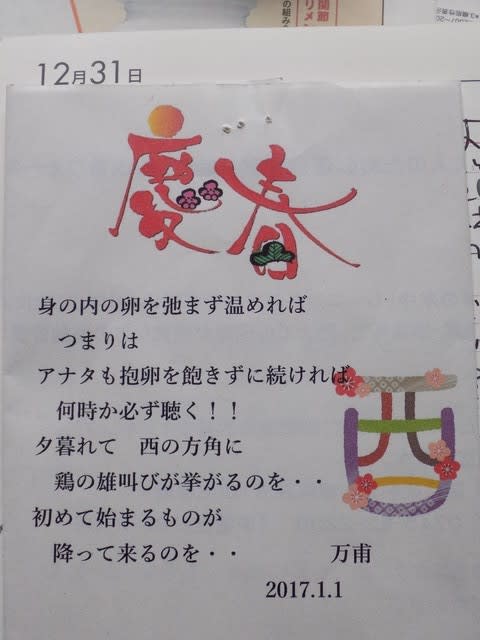 12月31日
慶春
身の内の卵を弛まず温めれば
つまりは
アナタも抱卵を飽きずに続ければ
何時か必ず聴く！！
夕暮れて　西の方角に
鶏の雄叫びが挙がるのを・・
初めて始まるものが
降って来るのを・・　万甫
2017.1.1
酉